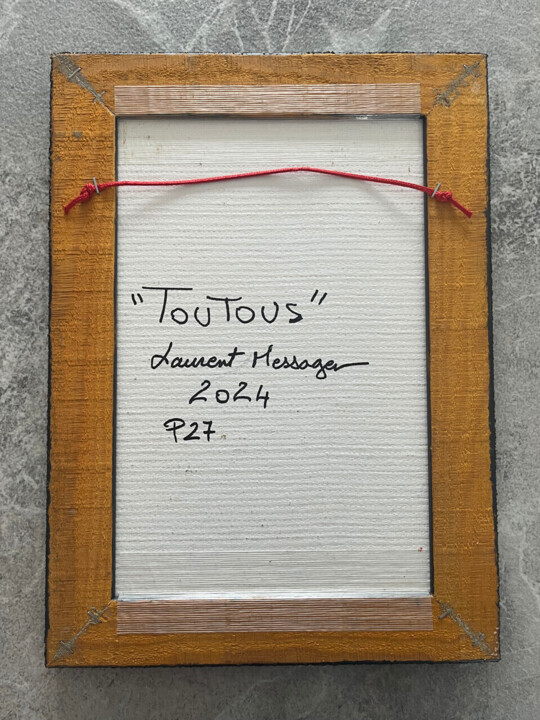 "TouTous"
Laurent Messager
2024
P27